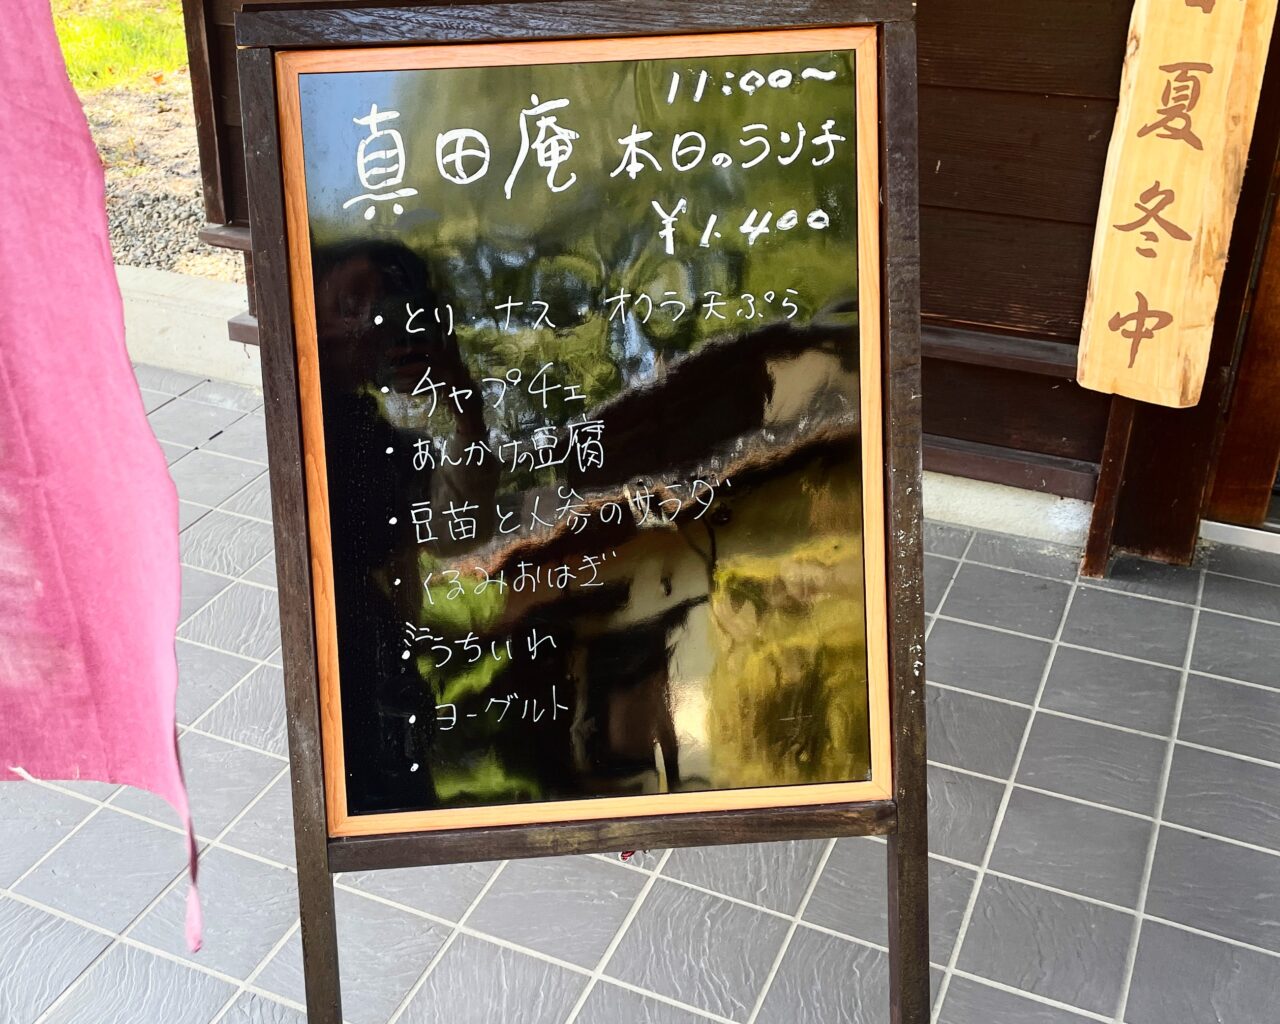 11:00〜
真田庵 本日のランチ
¥1.400
・とり・ナス・オクラ天ぷら
・チャプチェ
・あんかけの豆腐
・豆苗と人参のサラダ
・くるみおはぎ
・ミニうちいれ
・ヨーグルト
・
夏冬中